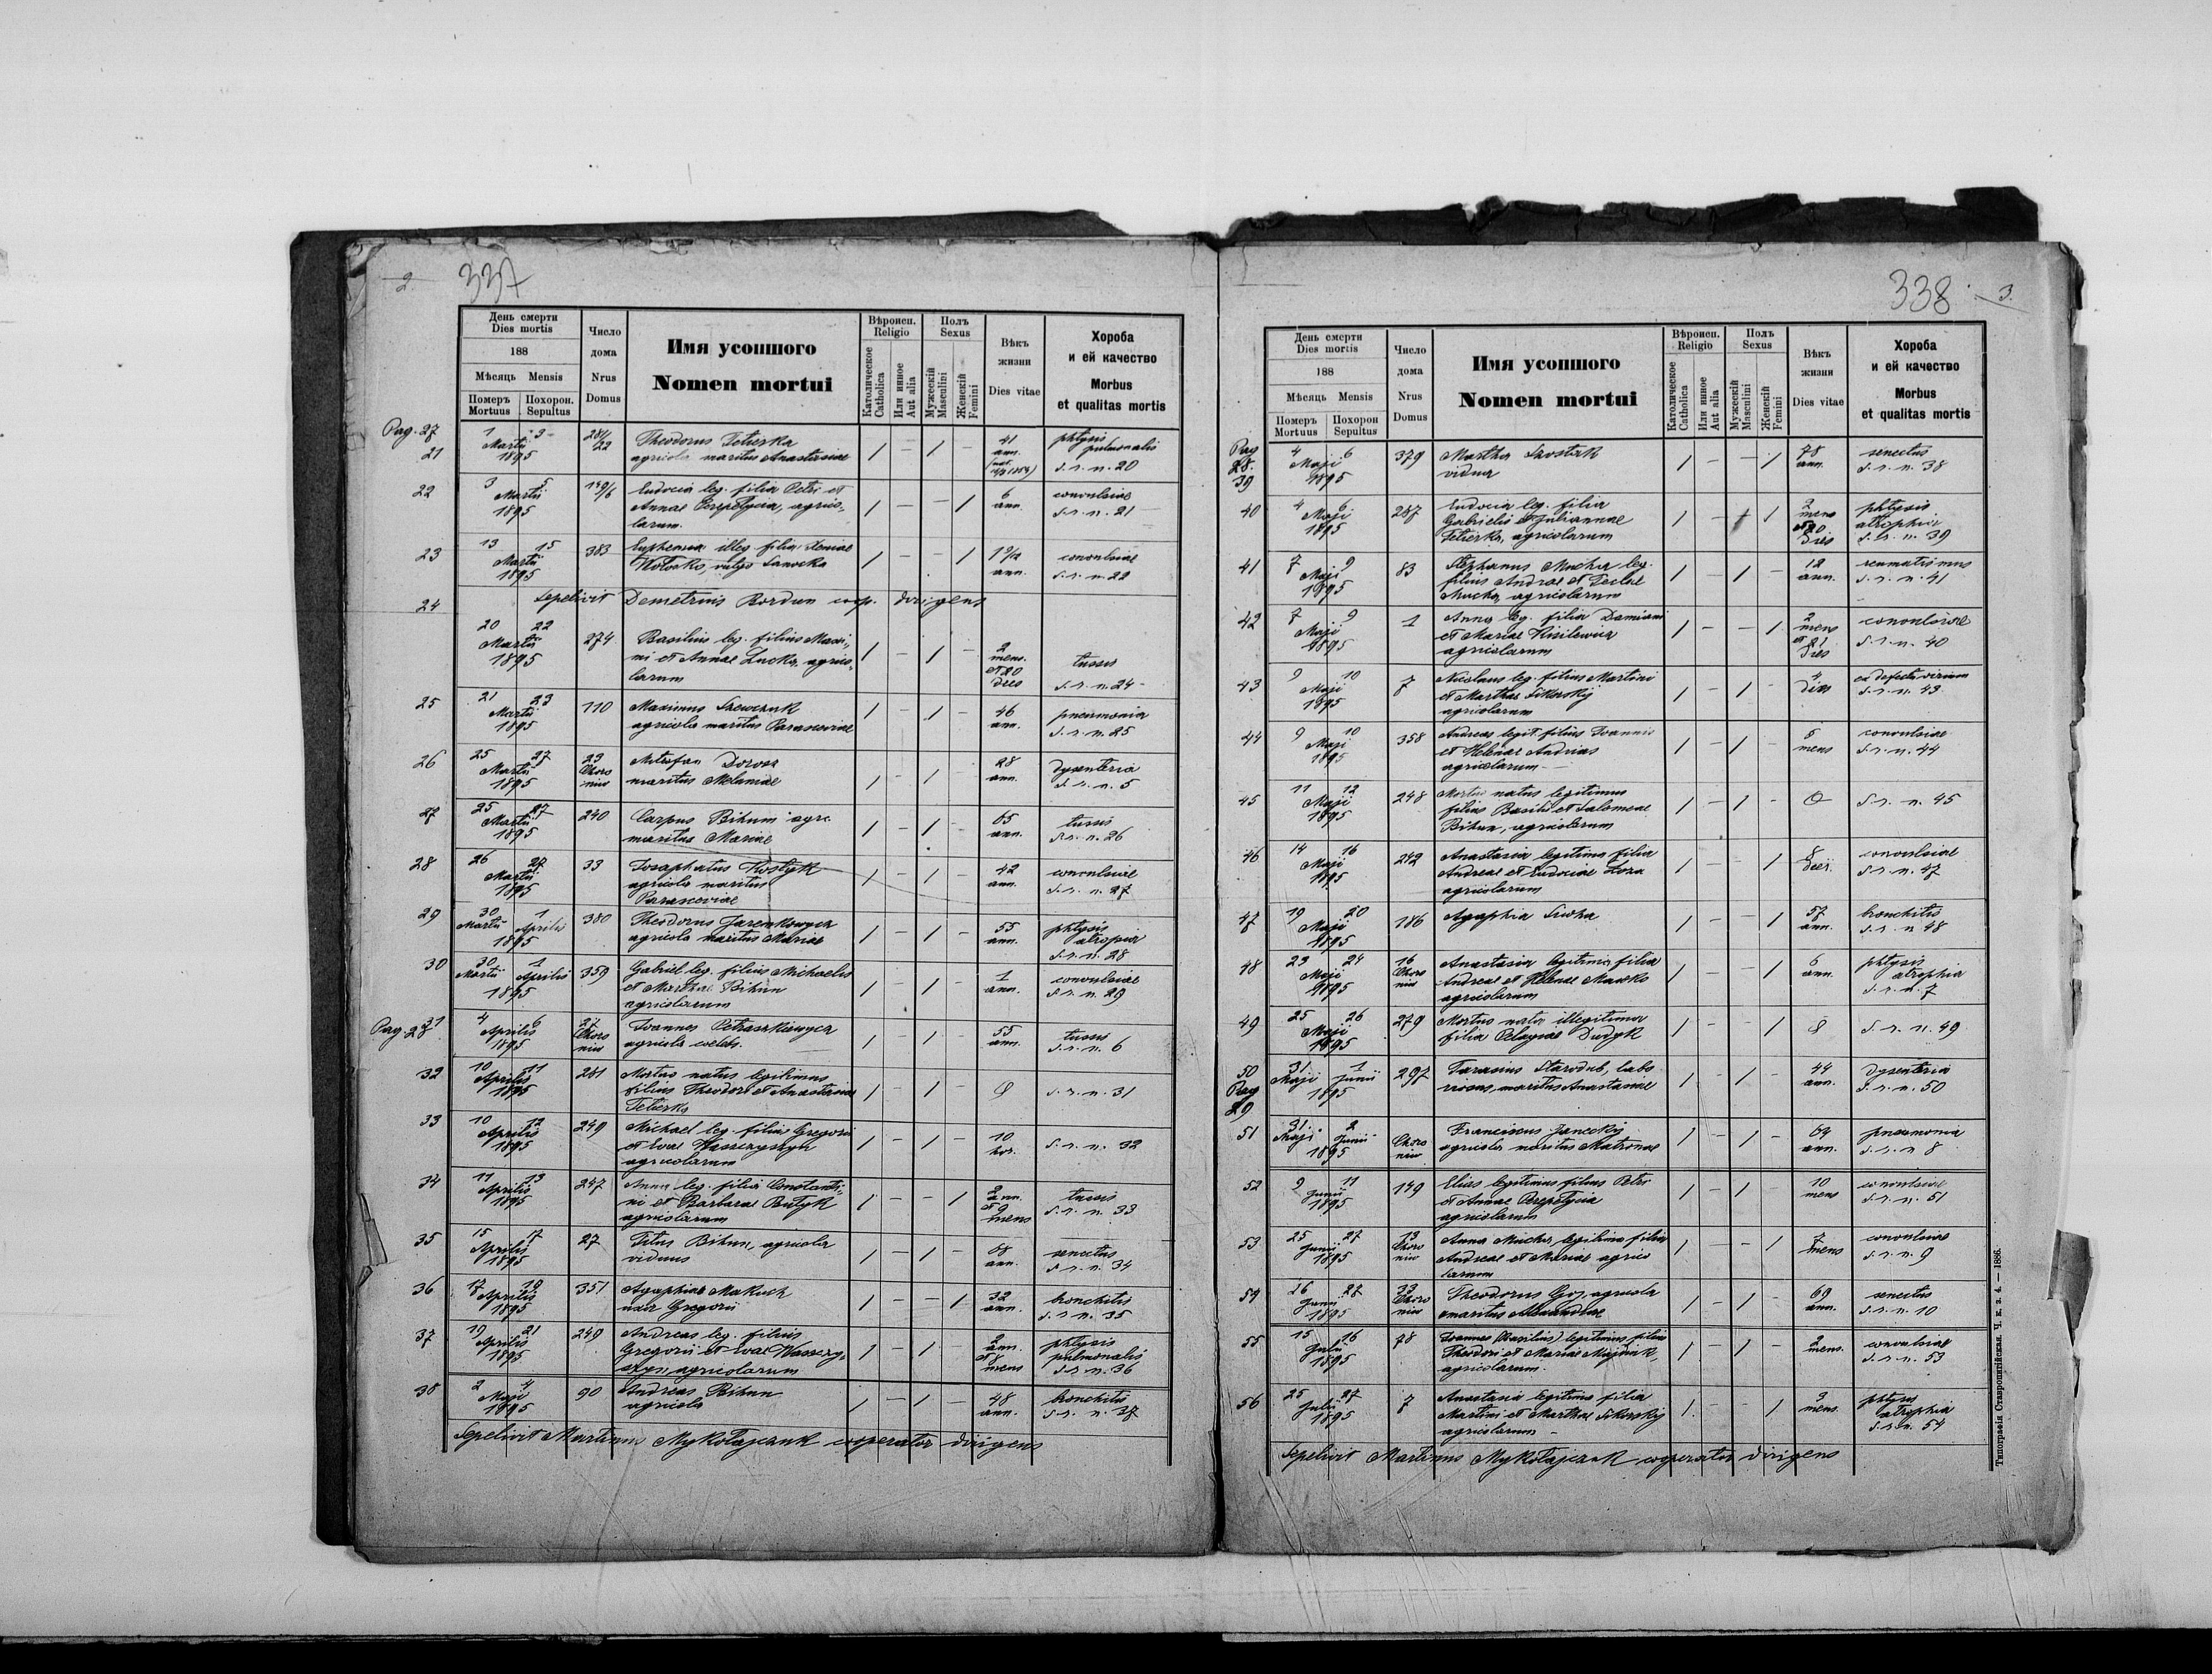 2.
337
День смерти
Dies mortis
188
Мѣсяць Mensis
Померъ Похорон.
Mortuus Sepultus
Число
дома
Nrus
Domus
Имя усопшого
Nomen mortui
Вѣроисп.
Religio
Католическое
Catholica
Или инное
Aut alia
Полъ
Sexus
Мужескій
Masculini
Женскій
Femini
Вѣкъ
жизни
Dies vitae
Хороба
и ей качество
Morbus
et qualitas mortis
Pag. 27
21
1 3
Martii
1895
281/22
Theodorus Teterka
agricola maritus Anastasiae
41
ann.
phtysis
pulmonalis
S. r. n. 20
22
3 5
Martii
1895
149/6
Eudocia leg. filia Petri et
Annae Perepelycia, agrico-
larum
6
ann.
convulsiae
S. r. n. 21
23
13 15
Martii
1895
383
Euphemia illeg. filia Xeniae
1 9/12
ann.
convulsiae
S. r. n. 22
Sepelivit Demetrius Bordun coop. dirigens
24
20 22
Martii
1895
274
Basilius leg. filius Maxi-
mi et Annae Lucka, agrico-
larum
2
mens.
et 20
dies
tussis
S. r. n. 24
25
21 23
Martii
1895
110
Maximus Szewczuk
agricola maritus Parasceviae
46
ann.
pneumonia
S. r. n. 25
26
25 27
Martii
1895
23
Choro
niw
Dorosz
maritus Melaniae
28
ann.
dysenteria
S. r. n. 5
27
25 27
Martii
1895
240
Carpus Bihun agr.
maritus Mariae
65
ann.
tussis
S. r. n. 26
28
26 27
Martii
1895
33
Josaphatus Kostyk
agricola maritus
Parasceviae
42
ann.
convulsiae
S. r. n. 27
29
30 1
Martii Aprilis
1895
380
Theodorus Jaremkowycz
agricola maritus Mariae
55
ann.
phtysis
atropia
S. r. n. 28
30
30 1
Martii Aprilis
1895
359
Gabriel leg. filius Michaelis
et Marthae Bihun
agricolarum
1
ann.
convulsiae
S. r. n. 29
31
Pag. 28
4 6
Aprilis
1895
Choro
niw
Joannes Petraszkiewycz
agricola coelebs.
55
ann.
tussis
S. r. n. 6
32
10 11
Aprilis
1895
281
Mortuo natus legitimus
filius Theodori et Anastasiae
Teterka
S. r. n. 31
33
10 12
Aprilis
1895
249
Michael leg. filius Gregorii
et Evae Wasseryszyn
agricolarum
10
hor.
S. r. n. 32
34
11 13
Aprilis
1895
247
Anna leg. filia Constanti-
ni et Barbarae Butyk
agricolarum
2
ann.
et 9
mens
tussis
S. r. n. 33
35
15 17
Aprilis
1895
27
Titus Bihun, agricola
viduus
68
ann.
senectus
S. r. n. 34
36
17 19
Aprilis
1895
351
Agaphia Makuch
uxor Gregorii
32
ann.
bronchitis
S. r. n. 35
37
19 21
Aprilis
1895
249
Andreas leg. filius
Gregorii et Evae Wassery-
szyn, agricolarum
2
ann.
et 8
mens
phtysis
pulmonalis
S. r. n. 36
38
2 4
Maji
1895
90
Andreas Bihun
agricola
48
ann.
bronchitis
S. r. n. 37
Sepelivit Martinus Mykołajczuk cooperator dirigens
338
3.
День смерти
Dies mortis
188
Мѣсяць Mensis
Померъ Похорон
Mortuus Sepultus
Число
дома
Nrus
Domus
Имя усопшого
Nomen mortui
Вѣроисп.
Religio
Католическое
Catholica
Или инное
Aut alia
Полъ
Sexus
Мужескій
Masculini
Женскій
Femini
Вѣкъ
жизни
Dies vitae
Хороба
и ей качество
Morbus
et qualitas mortis
Pag
28.
39
4 6
Maji
1895
379
Martha Szostak
vidua
78
ann.
senectus
S. r. n. 38
40
4 6
Maji
1895
287
Eudocia leg. filia
Gabrielis et Juliannae
Teterka, agricolarum
2
mens
et 20
dies
phtysis
atrophia
S. r. n. 39
41
7 9
Maji
1895
83
Stephanus Mucha leg.
filius Andreae et Teclae
Mucha, agricolarum
12
ann.
reumatismus
S. r. n. 41
42
7 9
Maji
1895
1
Anna leg. filia Damiani
et Mariae Kisilewicz
agricolarum
2
mens
et 21
dies
convulsiae
S. r. n. 40
43
9 10
Maji
1895
7
Nicolaus leg. filius Martini
et Marthae Sikorskij
agricolarum
4
dies
ex defectu virium
S. r. n. 43
44
9 10
Maji
1895
358
Andreas legit. filius Joannis
et Helenae Andrias
agricolarum
5
mens
convulsiae
S. r. n. 44
45
11 12
Maji
1895
248
Mortuo natus legitimus
filius Basilii et Salomeae
Bihun, agricolarum
S. r. n. 45
46
14 16
Maji
1895
242
Anastasia legitima filia
Andreae et Eudociae Loza
agricolarum
8
dies.
convulsiae
S. r. n. 47
47
19 20
Maji
1895
186
Agaphia
57
ann.
bronchitis
S. r. n. 48
48
23 24
Maji
1895
16
Choro
niw
Anastasia legitima filia
Andreae et Helenae
agricolarum
6
ann.
phtysis
atrophia
S. r. n. 7
49
25 26
Maji
1895
279
Mortuo nata illegitima
filia Pelagiae Dudyk
S. r. n. 49
50
Pag
29
31 1
Maji Junii
1895
297
Tarasius Starodub, labo
riosus, maritus Anastasiae
44
ann.
dysenteria
S. r. n. 50
51
31. 2
Maji Junii
1895
Choro
niw
Franciscus Janeckij
agricola maritus Matronae
64
ann.
pneumonia
S. r. n. 8
52
9 11
Junii
1895
149
Elias legitimus filius Petri
et Annae Perepelycia
agricolarum
10
mens
convulsiae
S. r. n. 51
53
25 27
Junii
1895
13
Choro
niw
Anna Mucha, legitima filia
Andreae et Mariae agrico
larum
7
mens
convulsiae
S. r. n. 9
54
26 28
Junii
1895
33
Choro
niw
Theodorus Goy, agricola
maritus Alexandrae
69
ann.
senectus
S. r. n. 10
55
15 16
Julii
1895
78
Joannes (Basilius) legitimus filius
Theodori et Mariae Majdnik,
agricolarum
2
mens.
convulsiae
S. r. n. 53
56
25 27
Julii
1895
7
Anastasia legitima filia
Martini et Marthae Sikorskij
agricolarum
3
mens.
phtysis
atrophia
S. r. n. 54
Sepelivit Martinus Mykołajczuk cooperator dirigens
Типографія Ставропигійская. Ч. к. з. 4. — 1886.